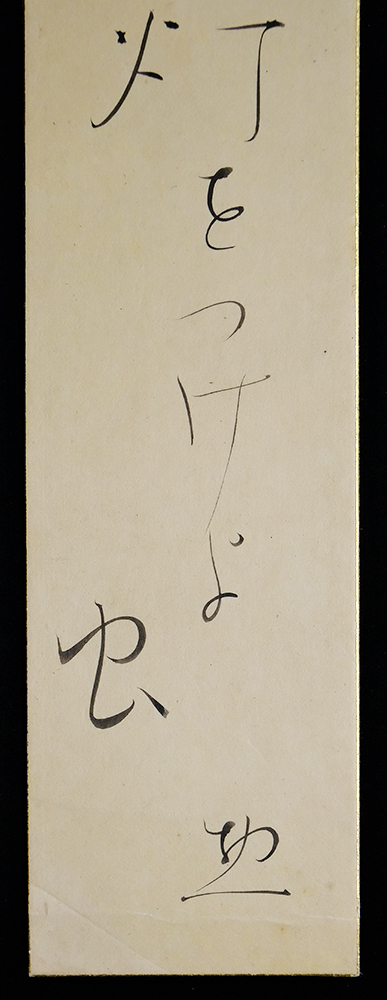 灯をつけよ
虫